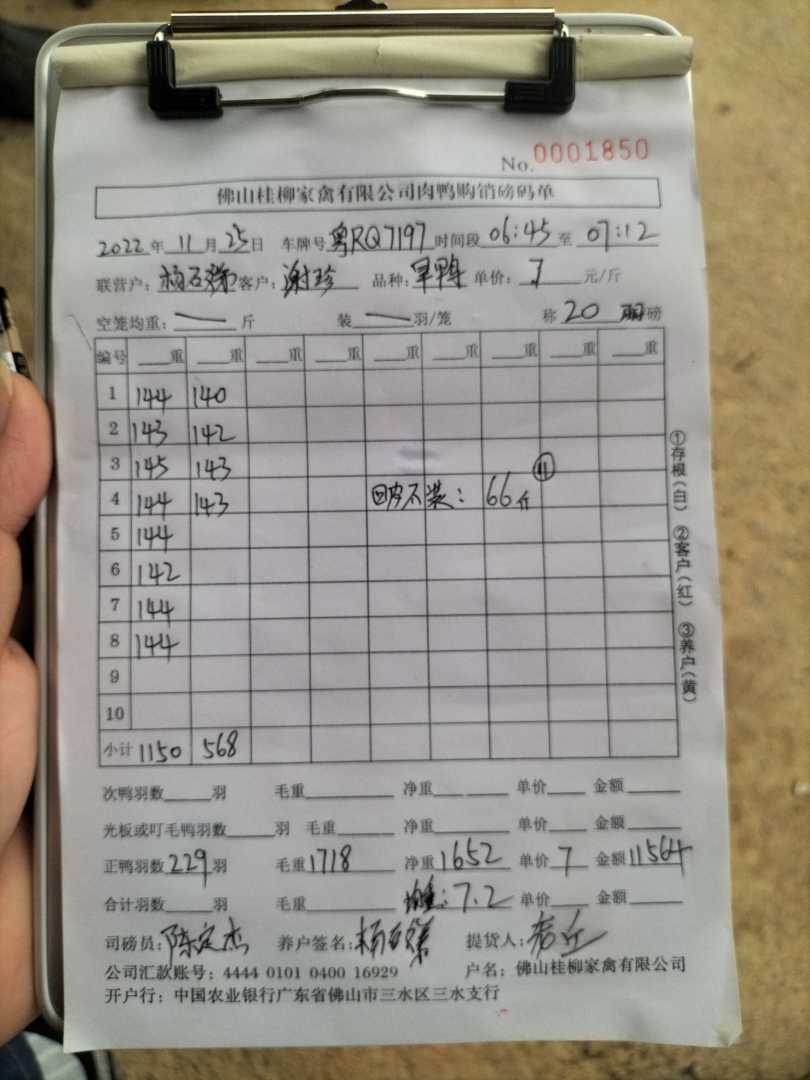 No. 0001850
佛山桂柳家禽有限公司肉鸭购销磅码单
2022年11月25日 车牌号粤RQ7197时间段06:45至07:12
联营户: 客户:谢珍 品种:旱鸭 单价:7元/斤
空笼均重:一斤 装一羽/笼 称20羽磅
编号 重 重 重 重 重 重 重 重 重
1 144 140
2 143 142
3 145 143 11
4 144 143 回皮不装:66斤
5 144
6 142
7 144
8 144
9
10
小计 1150 568
次鸭羽数 羽 毛重 净重 单价 金额
光板或叮毛鸭羽数 羽 毛重 净重 单价 金额
正鸭羽数229羽 毛重1718 净重1652 单价7 金额11564
合计羽数 羽 毛重 均重:7.2 单价 金额
司磅员:陈定杰 养户签名: 提货人:
公司汇款账号:4444 0101 0400 16929 户名:佛山桂柳家禽有限公司
开户行:中国农业银行广东省佛山市三水区三水支行
①存根(白) ②客户(红) ③养户(黄)